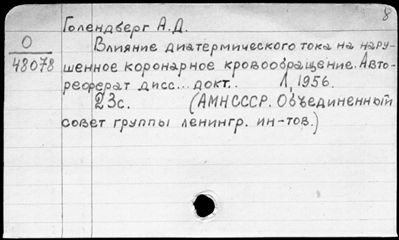 8
Голендберг А.Д.
О
48078
Влияние диатермического тока на нару-
шенное коронарное кровообращение. Авто-
реферат дисс... докт.. Л, 1956.
23с. (АМН СССР. Объединенный
совет группы ленингр. ин-тов.)